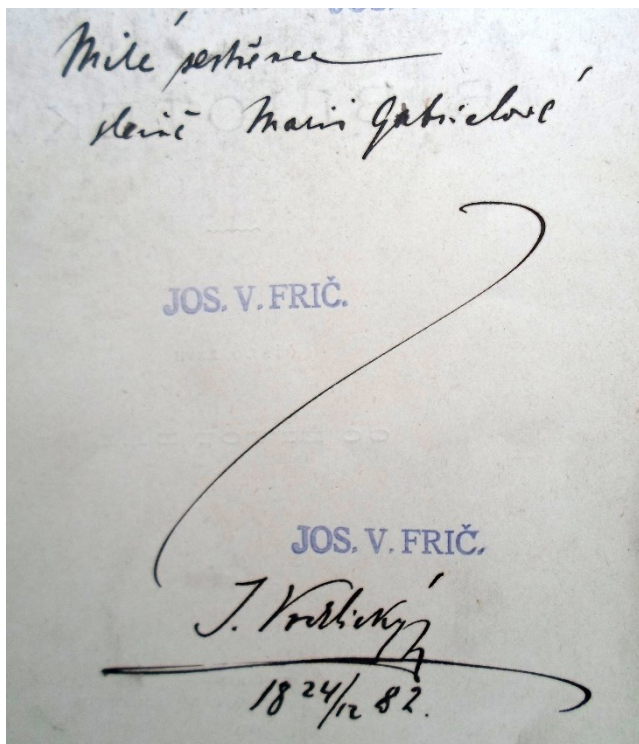 JOS.
Milé sestřence
slečně Marii Gabrielové
JOS. V. FRIČ.
JOS. V. FRIČ.
J. Vrchlický
18 24/12 82.